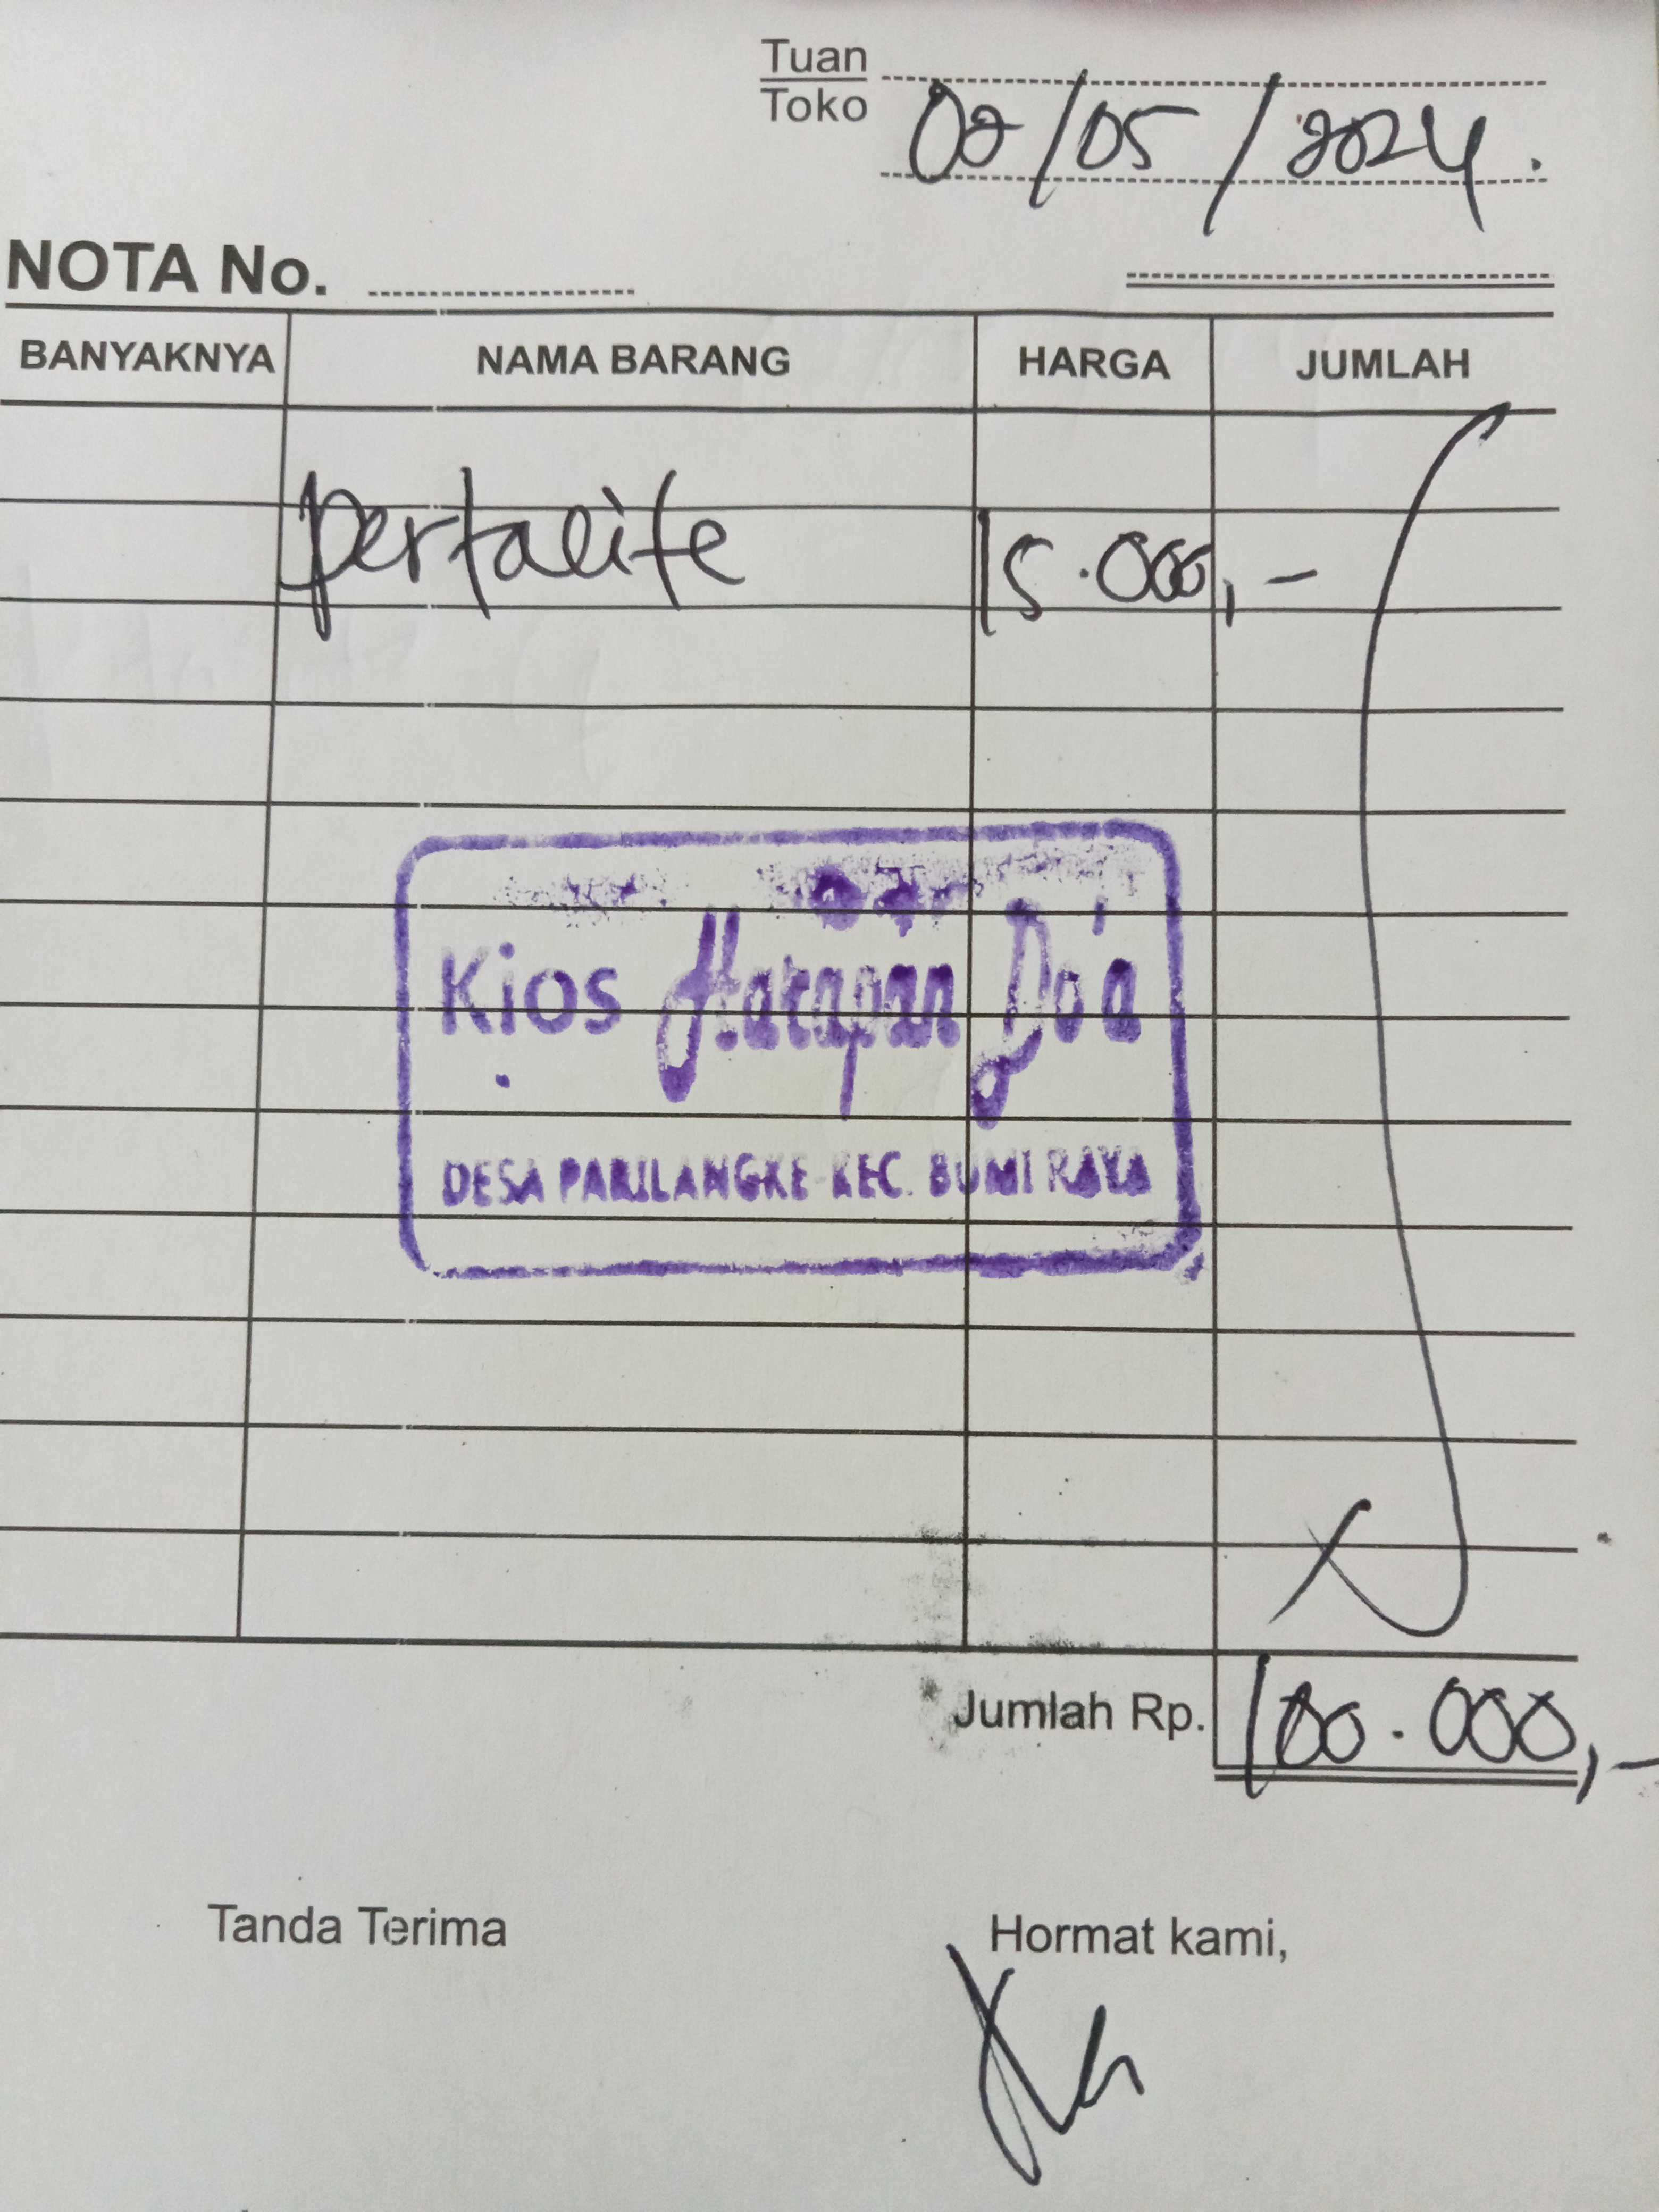 Tuan
Toko
02/05/2024.
NOTA No.
BANYAKNYA NAMA BARANG HARGA JUMLAH
Pertalite 15.000,-
Kios Harapan Do'a
DESA PARILANGKE KEC. BUMI RAYA
Jumlah Rp. 100.000,-
Tanda Terima Hormat kami,